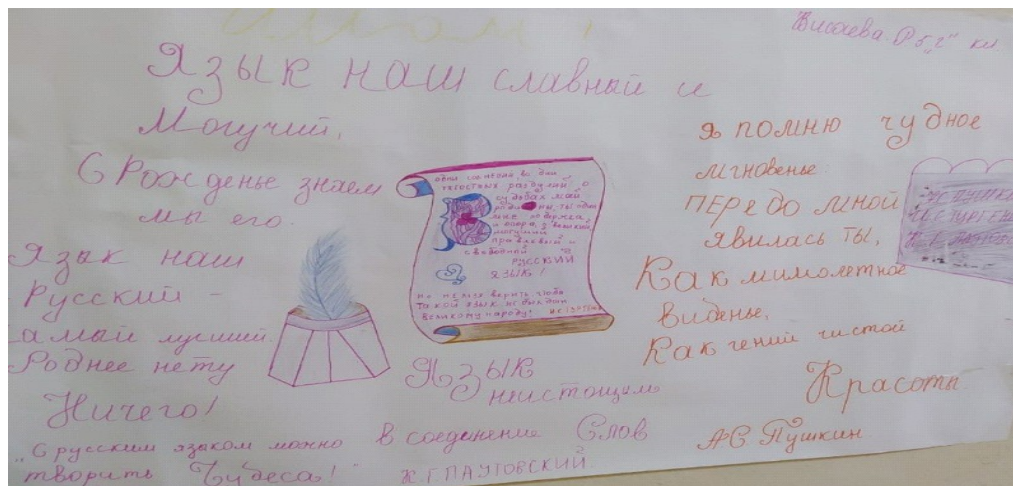 Висаева. Р 5 "г" кл
Язык наш славный и
Могучий,
С Рожденье знаем
мы его.
Язык наш
Русский –
амый лучший
Роднее нету
Ничего!
„С русским языком можно
творить Чудеса!"
К.Г. ПАУТОВСКИЙ.
во дни
тягостных раздумий о
судьбах моей
родины, ты один
мне
и опора, о великий,
могучий
правдивый и
свободной
РУССКИЙ
ЯЗЫК!
но нельзя верить, чтобы
такой язык не был дан
великому народу!
Язык
неистощим
в соединение Слов
я помню чудное
мгновенье
ПЕРЕДО МНОЙ
явилась ты,
Как мимолетное
виденье,
Как гений чистой
Красоты
АС Пушкин